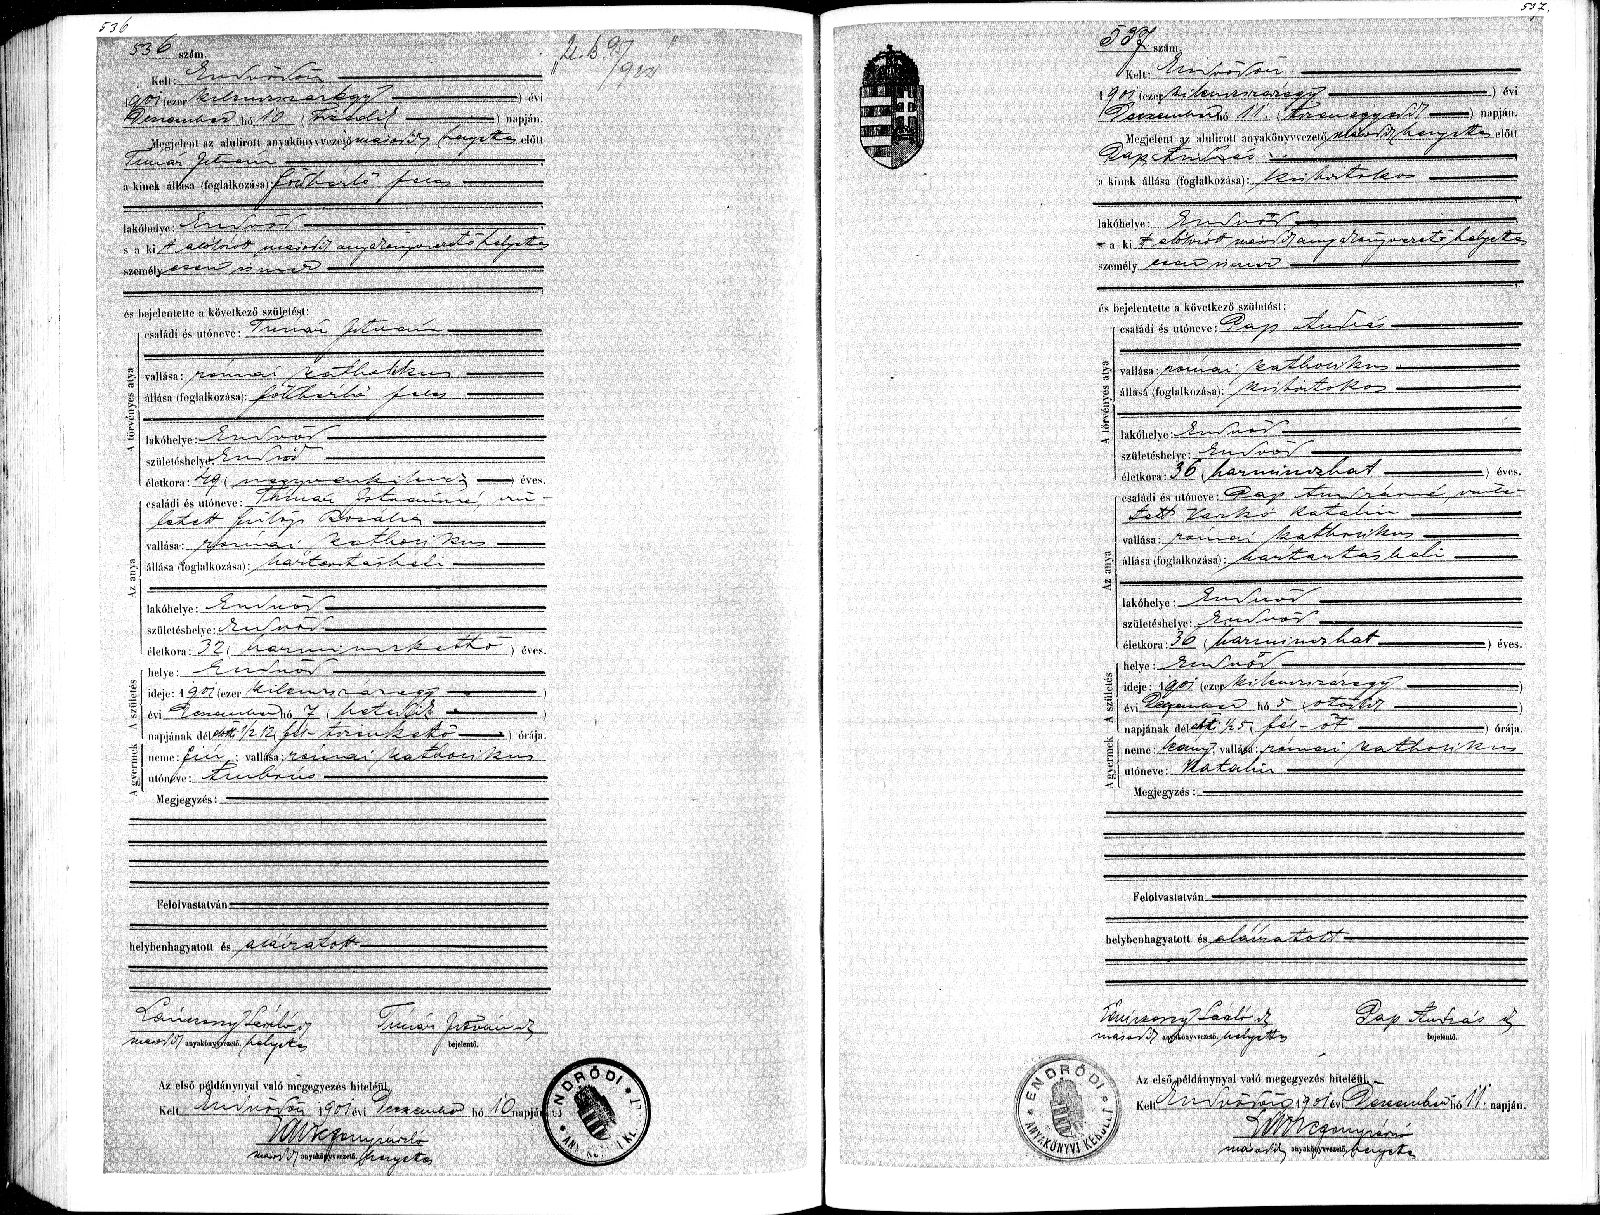 536
536 szám
Kelt: Endrődön
1901 (ezer kilenczszázegy) évi
Deczember hó 10 (tizedik) napján.
Megjelent az alulirott anyakönyvvezető másod helyettes előtt
Timár István
a kinek állása (foglalkozása) földbérlő feles
lakóhelye: Endrőd
s a ki t alólirott másod anyakönyvvezető helyettes
személyesen ismer
és bejelentette a következő születést:
A törvényes atya
családi és utóneve: Timár István
vallása: római katholikus
állása (foglalkozása): földbérlő feles
lakóhelye: Endrőd
születéshelye: Endrőd
életkora: 49 (negyvenkilencz) éves.
Az anya
családi és utóneve: Timár Istvánné, szü-
letett Fülöp Rozália
vallása: római katholikus
állása (foglalkozása): háztartásbeli
lakóhelye: Endrőd
születéshelye: Endrőd
életkora: 32 (harminczkettő) éves.
A születés
helye: Endrőd
ideje: 1901 (ezer kilenczszázegy)
évi Deczember hó 7 (hetedik)
napjának délelőtti 1/2 12 fél-tizenkettő) órája.
A gyermek
neme: fiú; vallása: római katholikus
utóneve: Ambrus
Megjegyzés:
Felolvastatván
helybenhagyatott és aláiratott
László
másod anyakönyvvezető, helyettes
Timár István
bejelentő.
Az első példánynyal való megegyezés hiteléül,
Kelt Endrődön 1901 évi Deczember hó 10 napján
másod anyakönyvvezető, helyettes
ENDRŐDI
537.
537 szám
Kelt: Endrődön
1901 (ezer kilenczszázegy) évi
Deczember hó 11. (tizenegyedik) napján.
Megjelent az alulirott anyakönyvvezető másod helyettes előtt
Pap András
a kinek állása (foglalkozása): kisbirtokos
lakóhelye: Endrőd
s a ki t alólirott másod anyakönyvvezető helyettes
személyesen ismer
és bejelentette a következő születést:
A törvényes atya
családi és utóneve: Pap András
vallása: római katholikus
állása (foglalkozása): kisbirtokos
lakóhelye: Endrőd
születéshelye: Endrőd
életkora: 36 (harminczhat) éves.
Az anya
családi és utóneve: Pap Andrásné, szüle-
tett Varkó Katalin
vallása: római katholikus
állása (foglalkozása): háztartásbeli
lakóhelye: Endrőd
születéshelye: Endrőd
életkora: 36 (harminczhat) éves.
A születés
helye: Endrőd
ideje: 1901 (ezer kilenczszázegy)
évi Deczember hó 5 (ötödik)
napjának délelőtti 1/2 5 (fél-öt) órája.
A gyermek
neme: leány; vallása: római katholikus
utóneve: Katalin
Megjegyzés:
Felolvastatván
helybenhagyatott és aláiratott
László
másod anyakönyvvezető, helyettes
Pap András
bejelentő.
ENDRŐDI
ANYAKÖNYVI KERÜLET
Az első példánynyal való megegyezés hiteléül,
Kelt Endrődön 1901 évi Deczember hó 11. napján.
másod anyakönyvvezető, helyettes